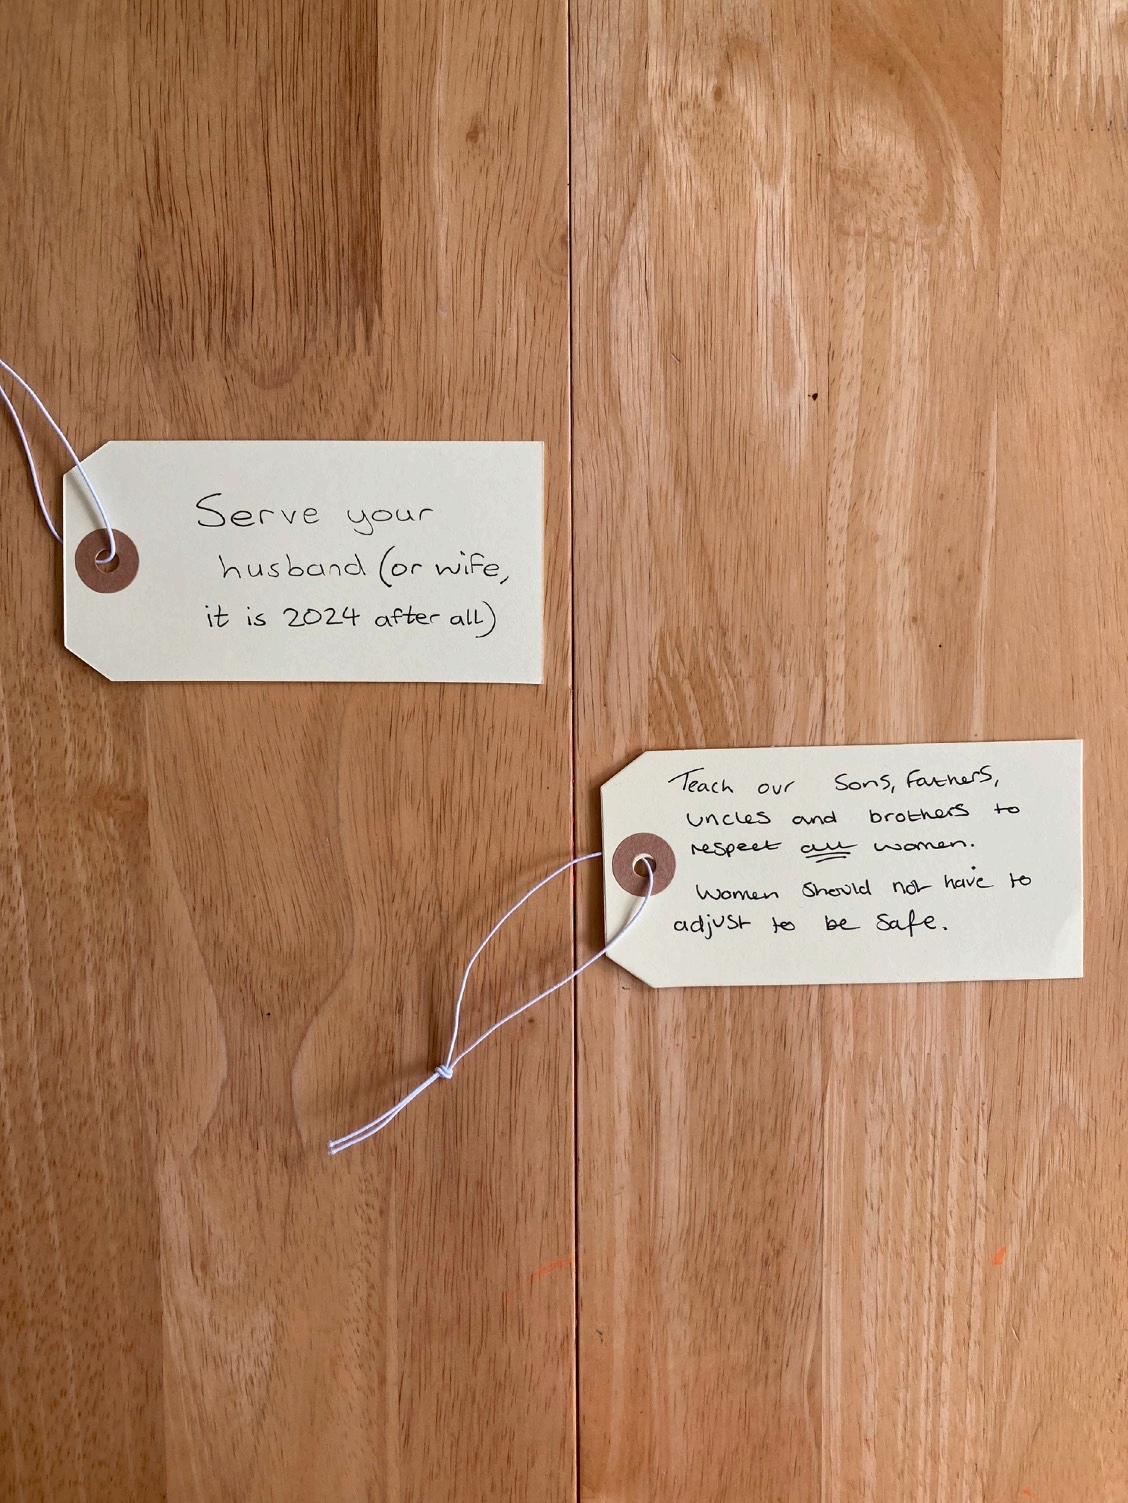 Serve your
husband (or wife,
it is 2024 after all)
Teach our sons, fathers,
uncles and brothers to
respect all women.
Women should not have to
adjust to be safe.